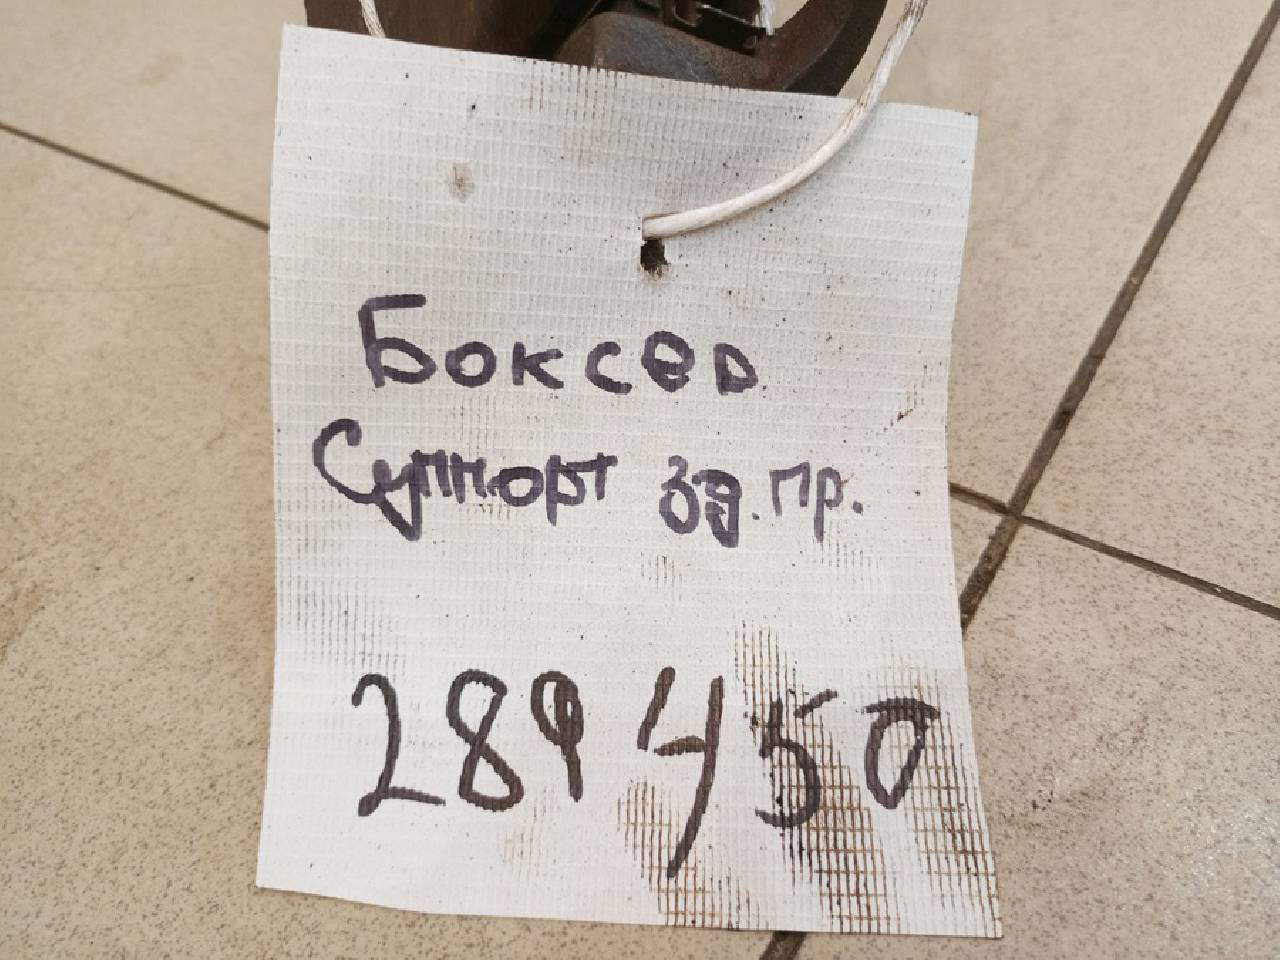 Боксер
Суппорт зд. пр.
289450